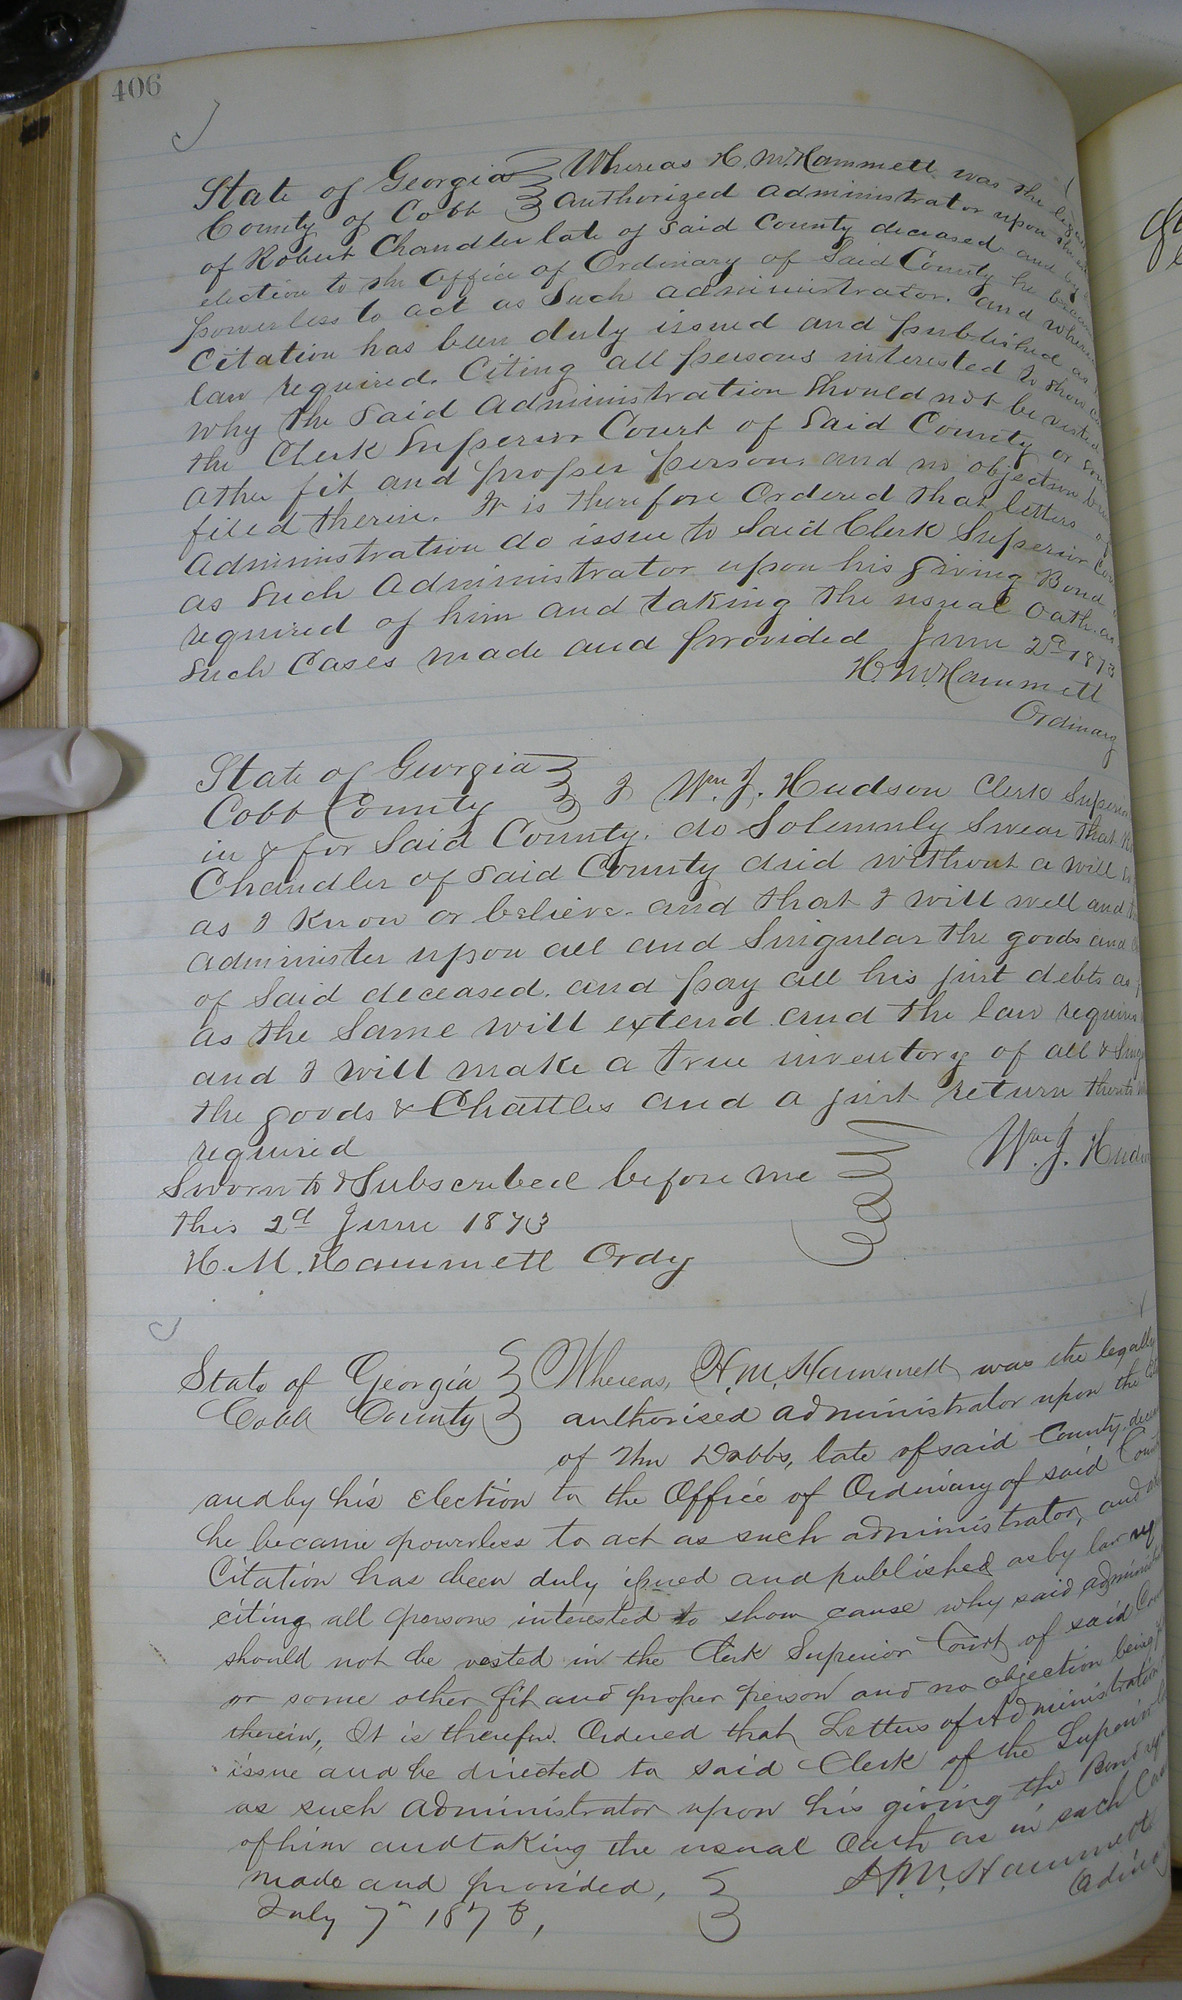 406
State of Georgia Whereas H. M. Hammett was the
County of Cobb authorized administrator upon the
of Robert Chandler late of said County deceased and by
election to the Office of Ordinary of Said County he
powerless to act as Such administrator. and
Citation has been duly issued and published as
law required. Citing all persons interested to show
why the said Administration should not be vested
the Clerk Superior Court of Said County or
other fit and proper person. and no objection
filed therin. It is therefore Ordered that letters of
Administration do issue to Said Clerk Superior
as Such Administrator upon his giving Bond
required of him and taking the usual Oath. as
Such Cases made and provided June 2d 1873
H. M. Hammett
Ordinary
State of Georgia
Cobb County I Wm J. Hudson Clerk
in & for Said County. do Solemnly Swear that
Chandler of said County died without a will
as I know or believe. and that I will well and
administer upon all and Singular the goods and
of Said deceased. and pay all his just debts as
as the Same will extend and the law requires
and I will make a true inventory of all &
the goods & Chattles and a just return
required
Wm J.
Sworn to & Subscribed before me
this 2d June 1873
H. M. Hammett Ordy
State of Georgia Whereas, H. M. Hammett was the legally
Cobb County authorised administrator upon the
of Wm Dobbs, late of said County
and by his election to the Office of Ordinary of said
he became powerless to act as such administrator, and
Citation has been duly issued and published as by law
citing all persons interested to show cause why said
should not be vested in the Clerk Superior Court of said
or some other fit and proper person and no objection being
therein, It is therefore Ordered that Letters of Administration
issue and be directed to said Clerk of the Superior
as such administrator upon his giving the Bond
of him and taking the usual Oath as in such
made and provided,
July 7th 1873,
H. M. Hammett